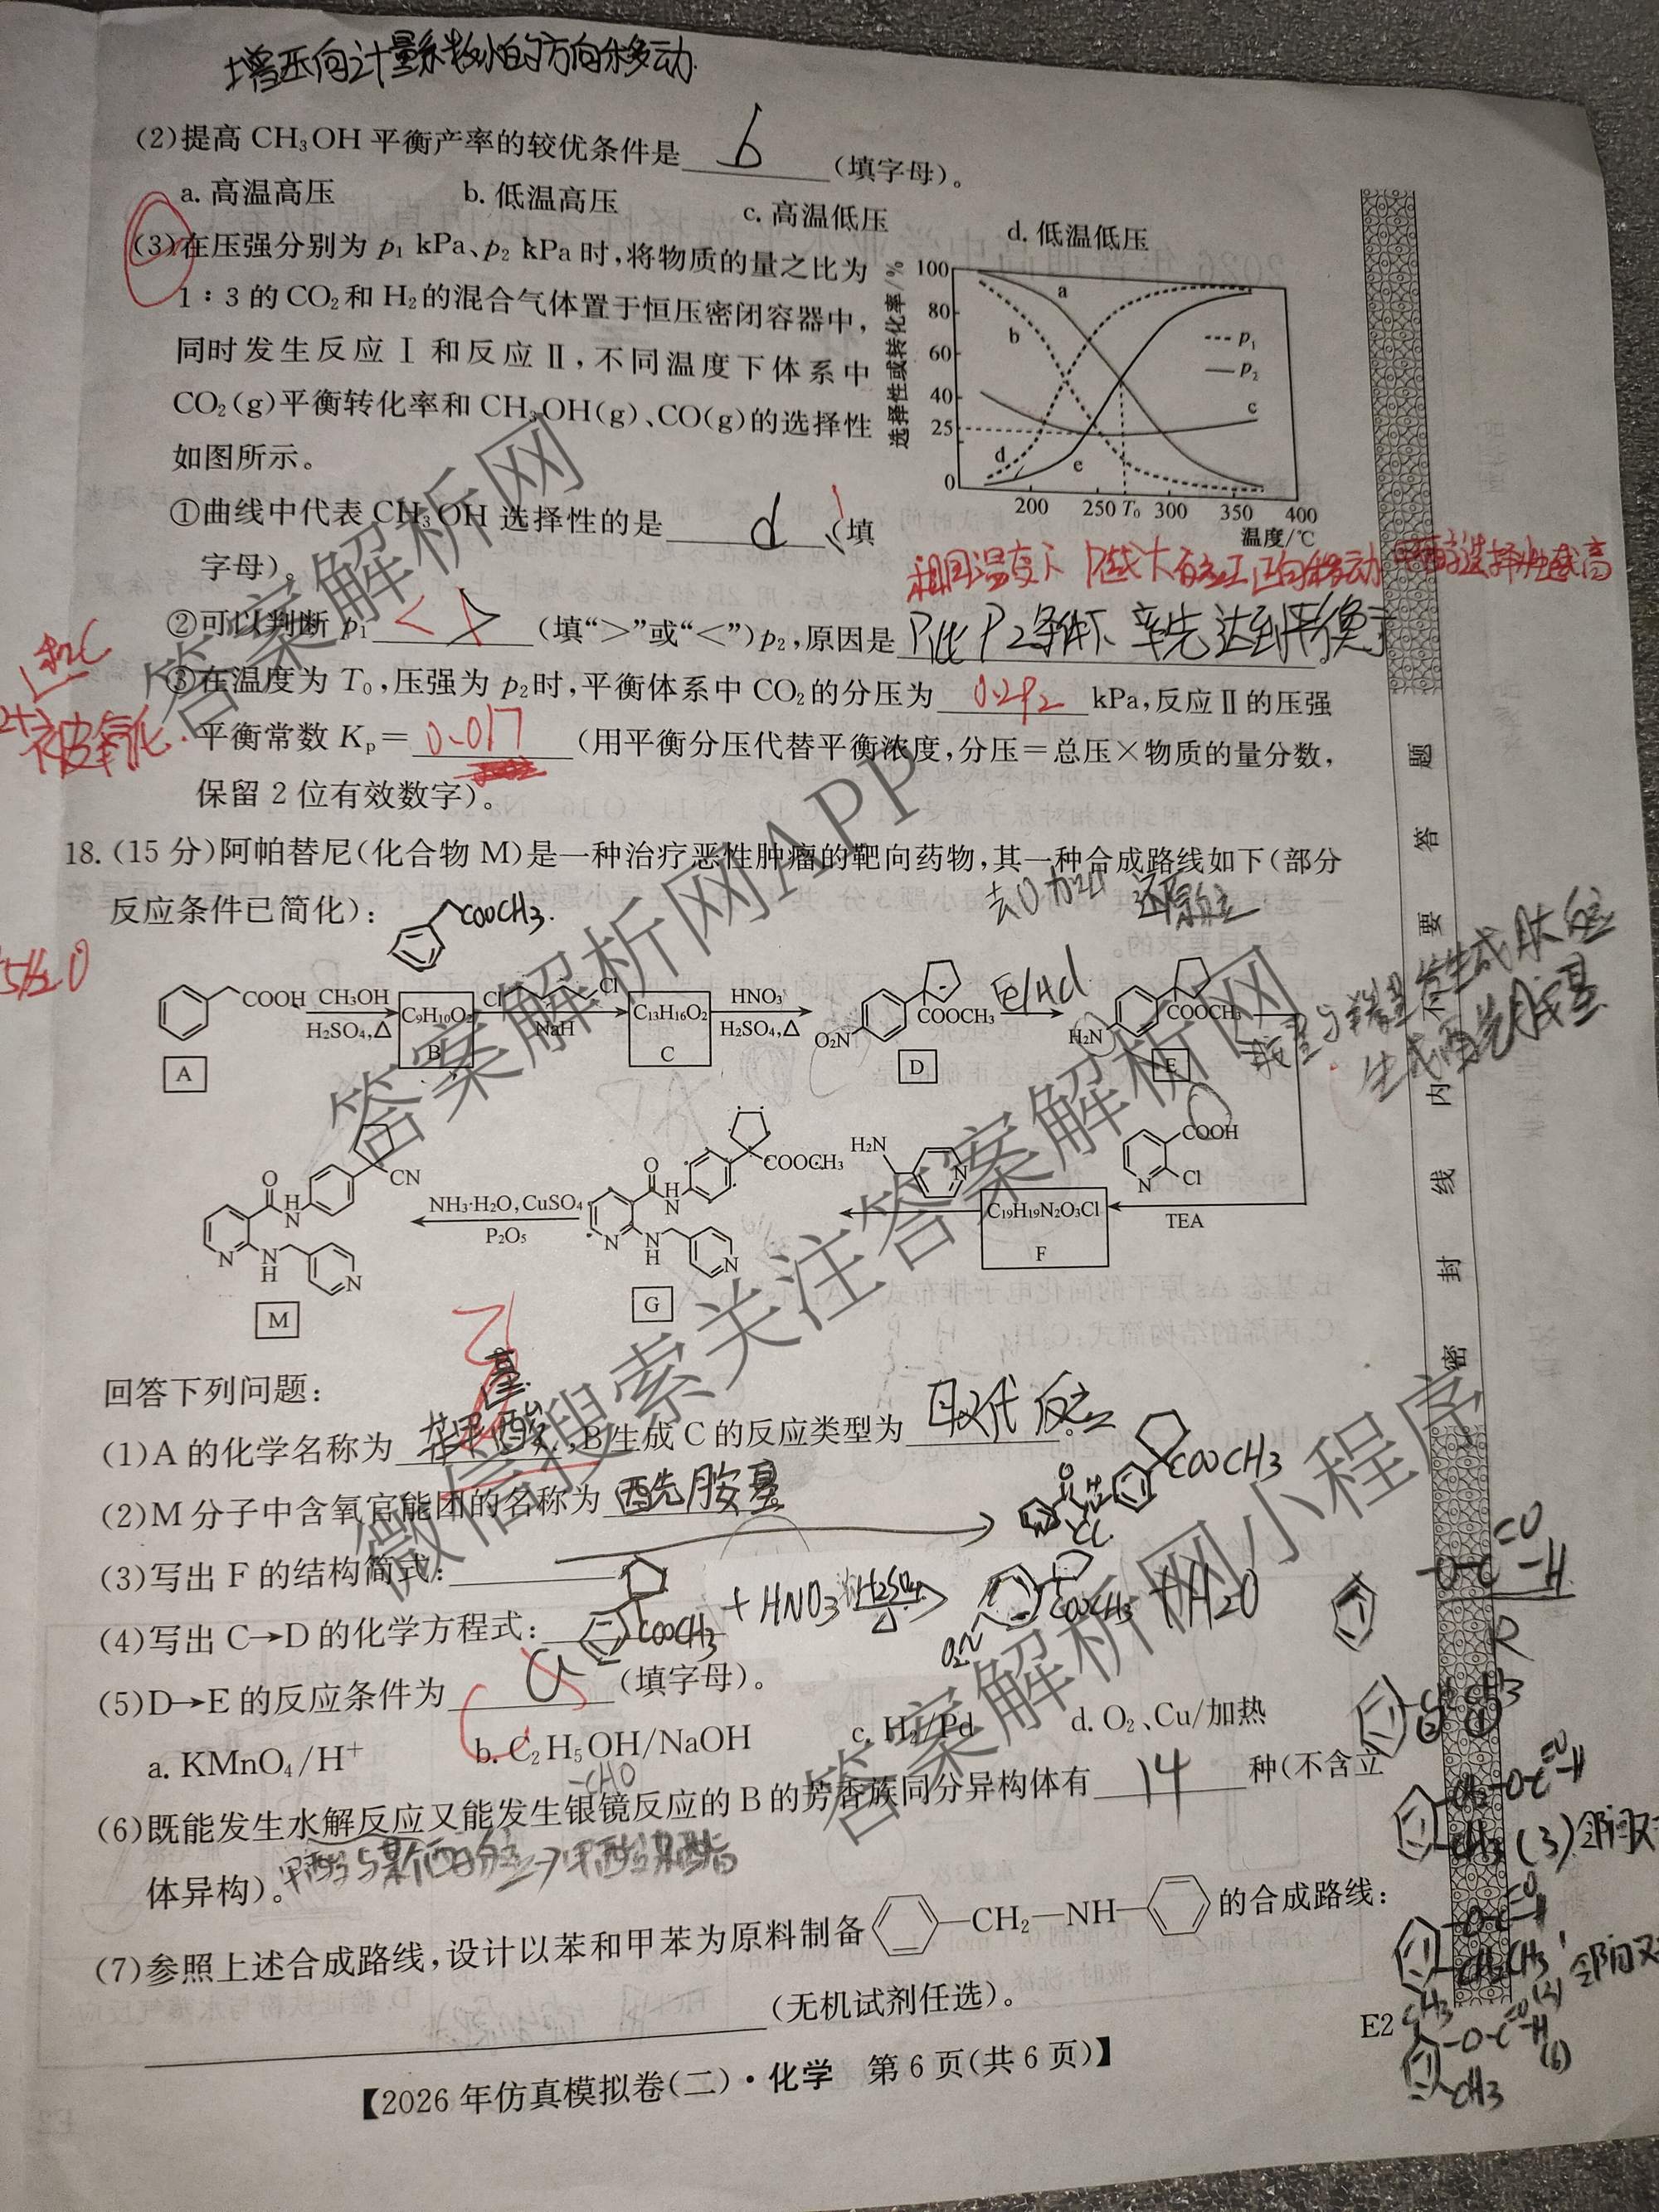 增压向计量系数小的方向移动
(2)提高 CH₃OH 平衡产率的较优条件是 b (填字母)。
a. 高温高压 b. 低温高压 c. 高温低压 d. 低温低压
(3)在压强分别为 p₁ kPa、p₂ kPa 时,将物质的量之比为
1∶3 的 CO₂ 和 H₂ 的混合气体置于恒压密闭容器中,
同时发生反应Ⅰ和反应Ⅱ,不同温度下体系中
CO₂(g)平衡转化率和 CH₃OH(g)、CO(g)的选择性
如图所示。
选择性或转化率/%
100
80
60
40
25
0
a
b
c
d
e
p₁
p₂
200 250 T₀ 300 350 400
温度/℃
①曲线中代表 CH₃OH 选择性的是 d (填
字母)。
相同温度下
②可以判断 p₁ < > (填“>”或“<”)p₂,原因是 P₁比P₂条件下率先达到平衡
和C
③在温度为 T₀,压强为 p₂ 时,平衡体系中 CO₂ 的分压为 0.2P₂ kPa,反应Ⅱ的压强
被氧化.
平衡常数 Kₚ= 0.017 (用平衡分压代替平衡浓度,分压=总压×物质的量分数,
保留 2 位有效数字)。
18. (15 分)阿帕替尼(化合物 M)是一种治疗恶性肿瘤的靶向药物,其一种合成路线如下(部分
去O加H 还原反应
反应条件已简化):
COOCH3.
5H₂O
COOH CH₃OH H₂SO₄,△ C₉H₁₀O₂ Cl Cl NaH C₁₃H₁₆O₂ HNO₃ H₂SO₄,△ O₂N COOCH₃ Fe/HCl H₂N COOCH₃
A B C D E
COOH N Cl
TEA
C₁₉H₁₉N₂O₃Cl
F
H₂N N
O N H COOCH₃ N N H N
G
NH₃·H₂O,CuSO₄ P₂O₅
O H N CN N N H N
M
回答下列问题:
(1)A 的化学名称为 苯甲酸 ,B 生成 C 的反应类型为 取代反应
基
乙
(2)M 分子中含氧官能团的名称为 酰胺基
COOCH3
Cl
(3)写出 F 的结构简式:
(4)写出 C→D 的化学方程式: COOCH3 + HNO3 H2SO4 △ O2N COOCH3 + H2O
(5)D→E 的反应条件为 a (填字母)。
a. KMnO₄/H⁺ b. C₂H₅OH/NaOH c. H₂/Pd d. O₂、Cu/加热
-CHO
(6)既能发生水解反应又能发生银镜反应的 B 的芳香族同分异构体有 14 种(不含立
体异构)。
(7)参照上述合成路线,设计以苯和甲苯为原料制备 —CH₂—NH— 的合成路线:
(无机试剂任选)。
【2026 年仿真模拟卷(二)·化学 第 6 页(共 6 页)】
E2
密 封 线 内 不 要 答 题
答案解析网
答案解析网APP
微信搜索关注答案解析网
答案解析网小程序